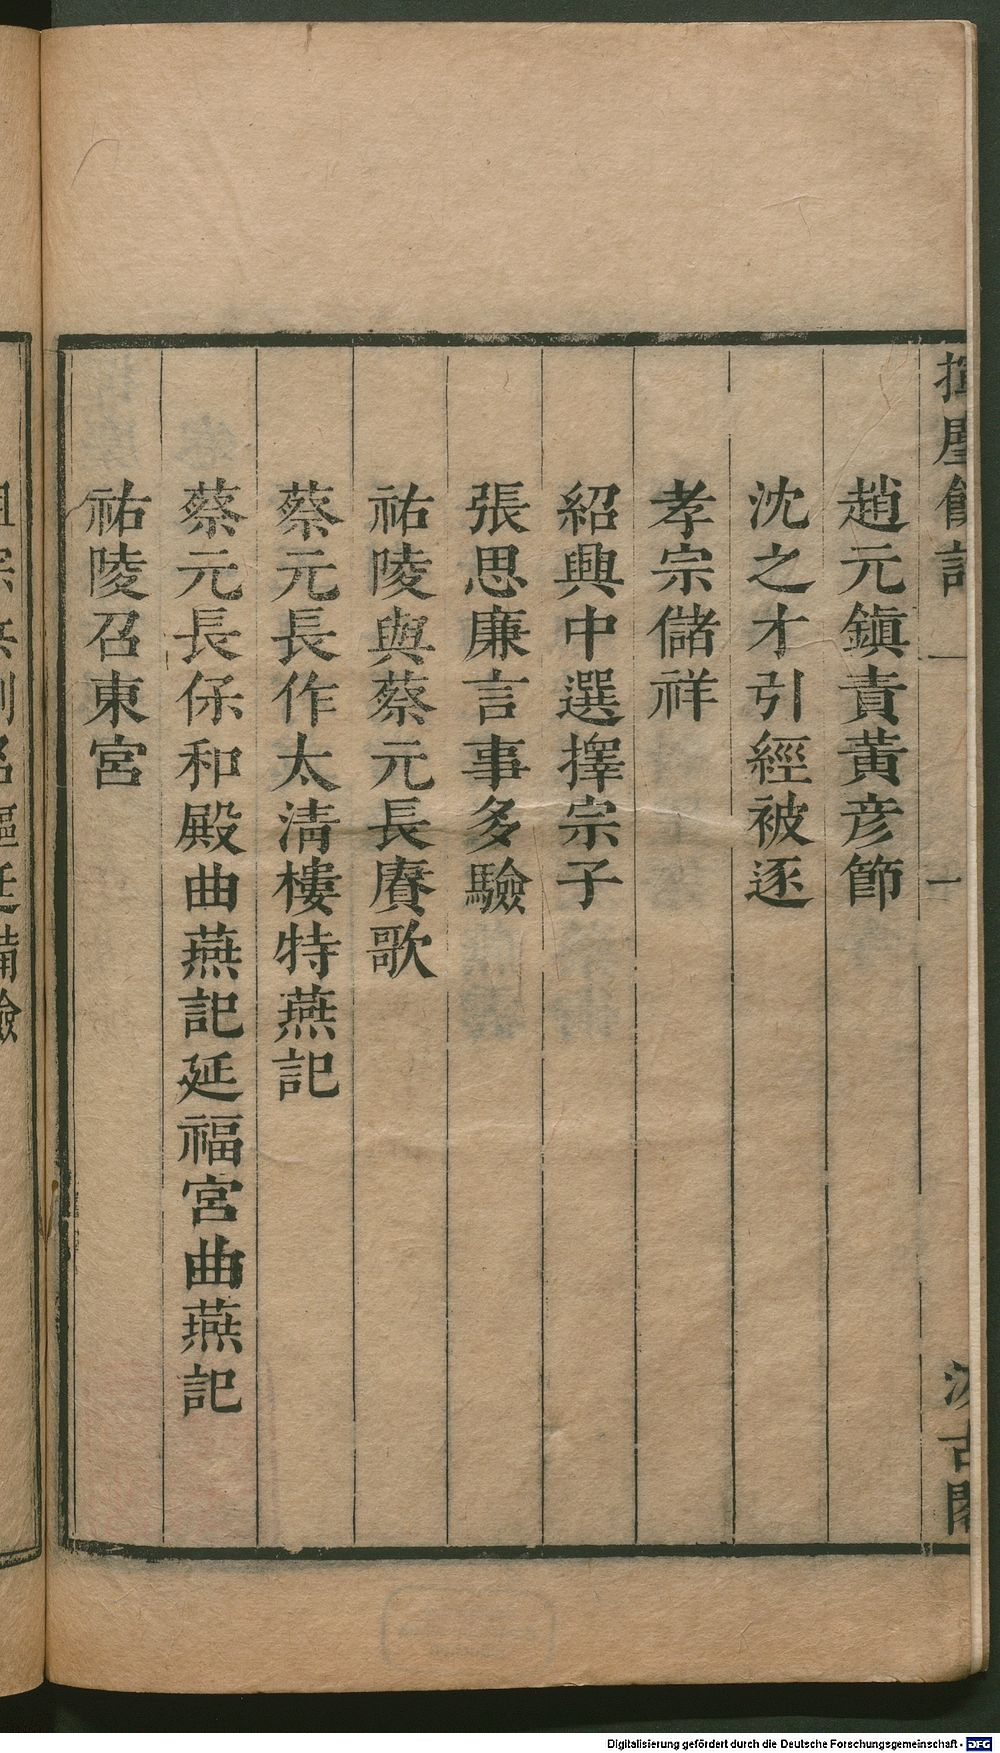 揮麈餘話 一 一 汲古閣
趙元鎭責黃彦節
沈之才引經被逐
孝宗儲祥
紹興中選擇宗子
張思廉言事多驗
祐陵與蔡元長賡歌
蔡元長作太淸樓特燕記
蔡元長保和殿曲燕記延福宮曲燕記
祐陵召東宮
Digitalisierung gefördert durch die Deutsche Forschungsgemeinschaft - DFG